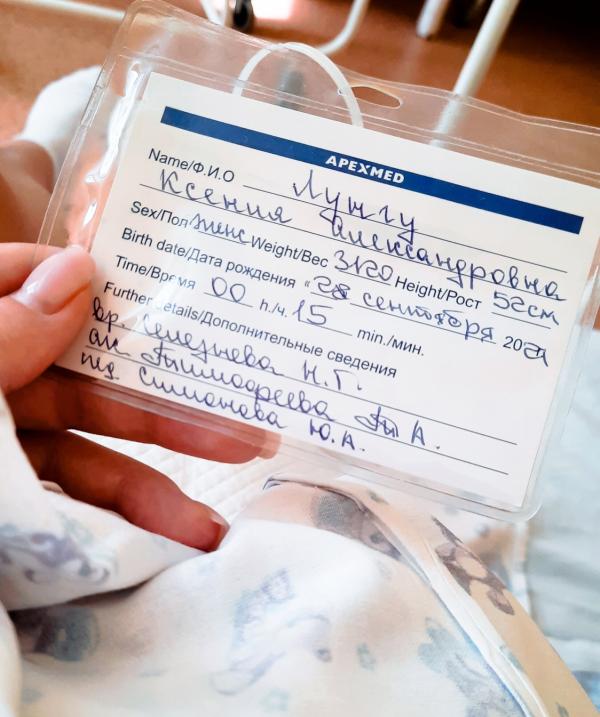 APEXMED
Name/Ф.И.О Лунгу
Ксения Александровна
Sex/Пол женс Weight/Вес 3120 Height/Рост 52см
Birth date/Дата рождения «28 сентября 2021
Time/Время 00 h./ч. 15 min./мин.
Further details/Дополнительные сведения
вр. Селезнева Н.Г.
ак. Тимофеева А.
пд Симонова Ю.А.